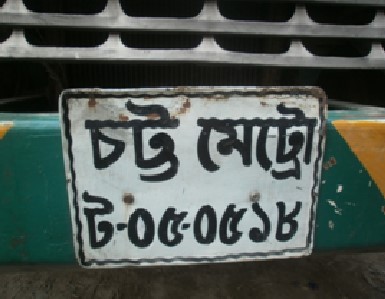 চট্ট মেট্রো
ট-০৫-০৫১৮